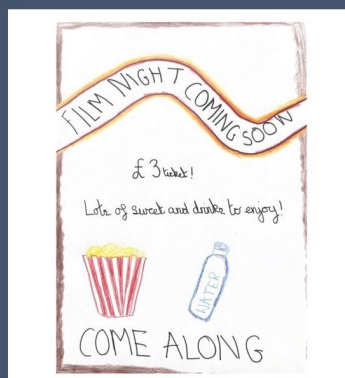 FILM NIGHT COMING SOON
£3 ticket!
Lots of sweet and drinks to enjoy!
WATER
COME ALONG